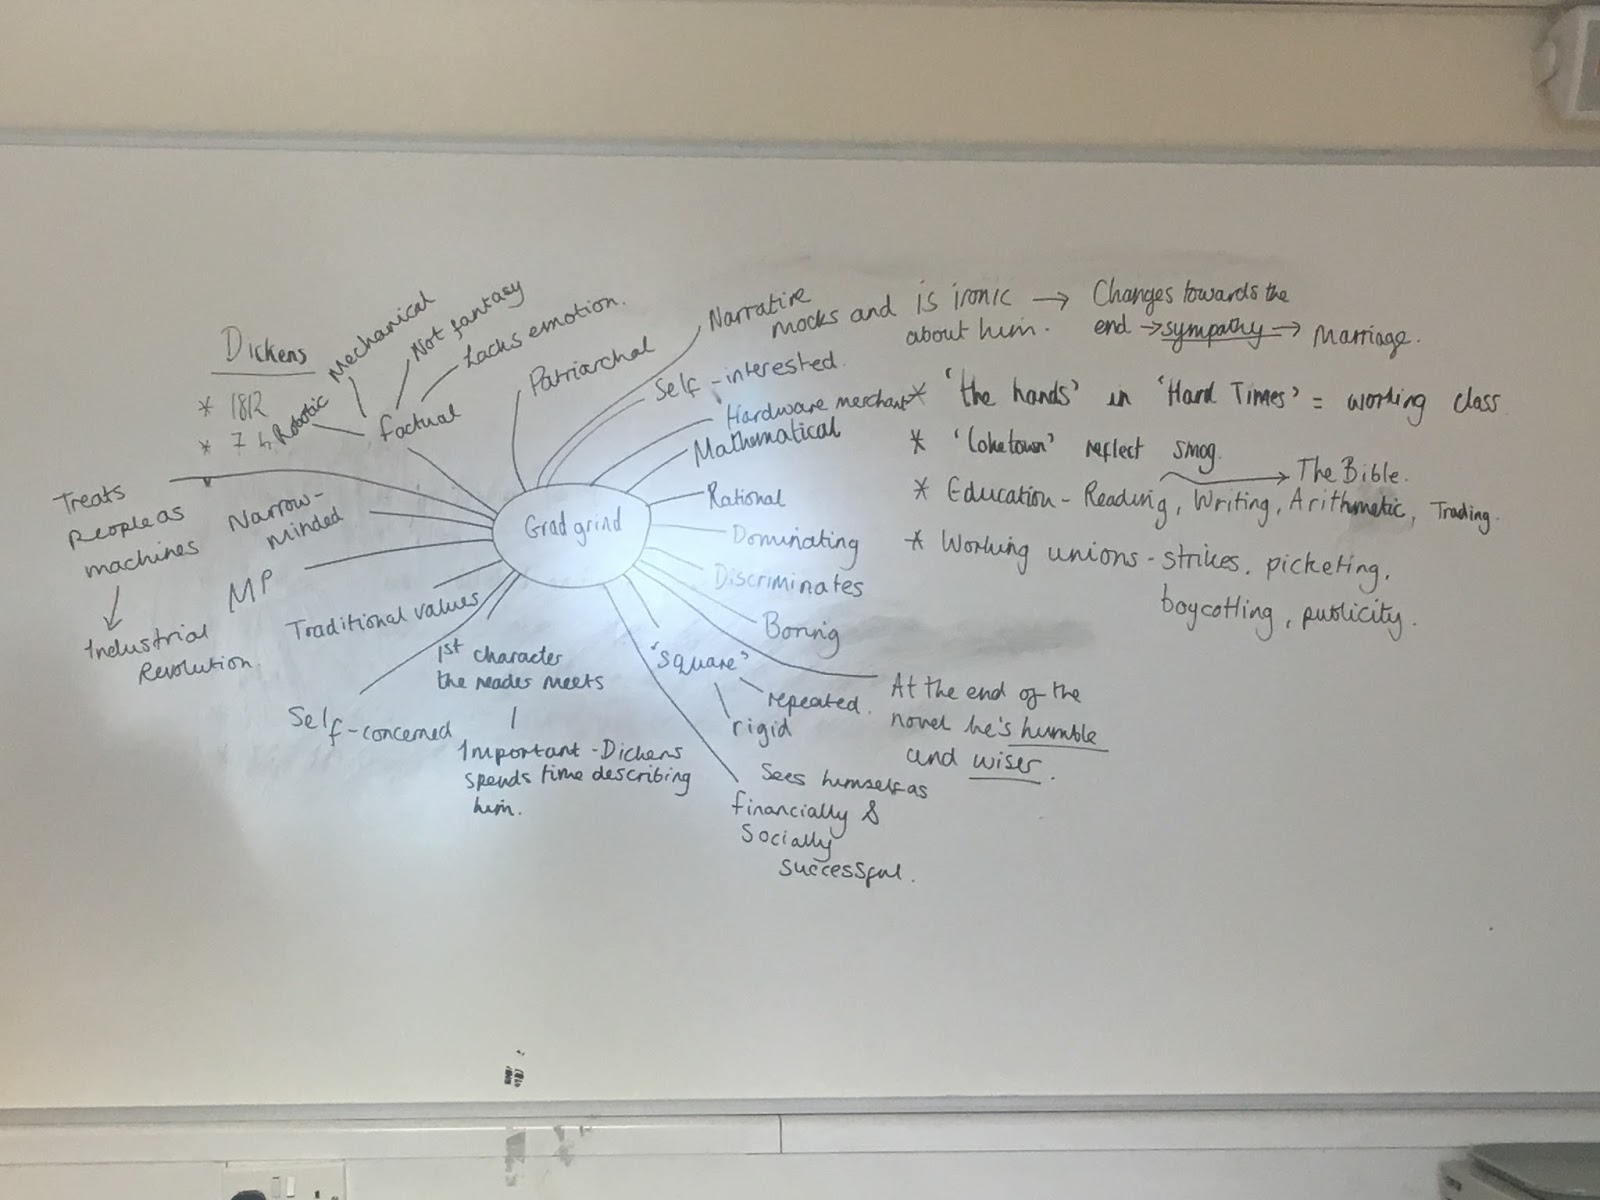 Dickens
* 1812
* 7
Robotic
Mechanical
Not fantasy
Lacks emotion.
factual
Patriarchal
Narrative
mocks and is ironic → Changes towards the
about him. end → sympathy → Marriage.
Self-interested.
Hardware merchant
Mathematical
Rational
Dominating
Discriminates
Boring
At the end of the
novel he's humble
and wiser.
'Square'
repeated.
rigid
Sees himself as
financially &
Socially
successful.
1st character
the reader meets
Important - Dickens
spends time describing
him.
Self-concerned
Traditional values
MP
Narrow-
minded
Treats
People as
machines
↓
Industrial
Revolution.
Gradgrind
* 'the hands' in 'Hard Times' = working class
* 'Coketown' reflect smog.
→ The Bible.
* Education - Reading, Writing, Arithmetic, Trading.
* Working unions - strikes, picketing,
boycotting, publicity.